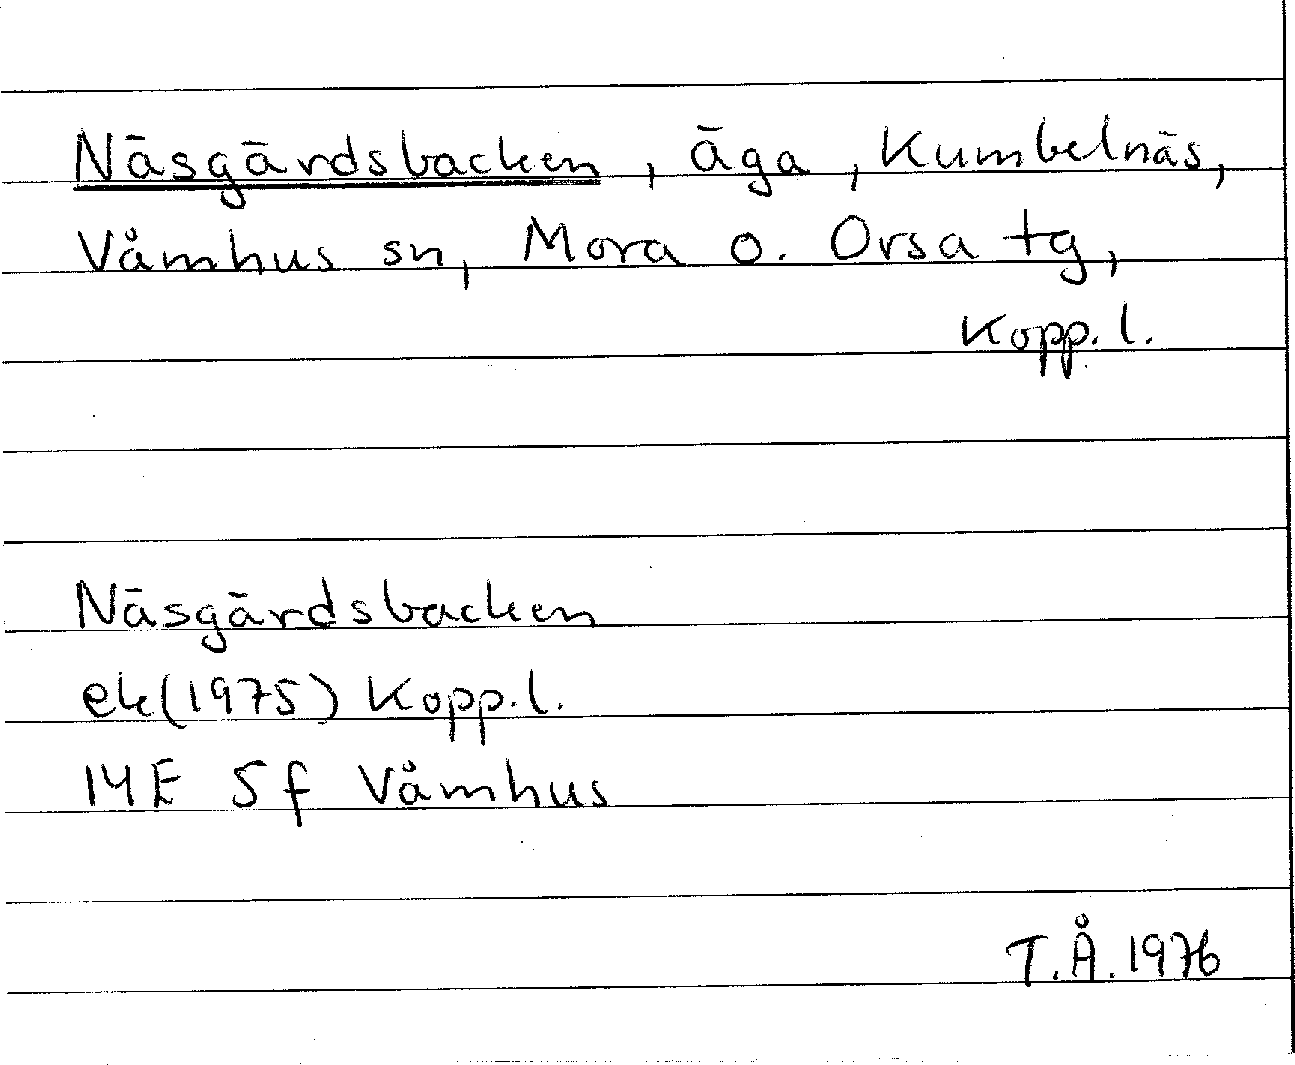 Näsgärdsbacken, äga, Kumbelnäs,
Våmhus sn, Mora o. Orsa tg,
Kopp. l.
Näsgärdsbacken
ek(1975) Kopp. l.
14E 5f Våmhus
T.Å. 1976